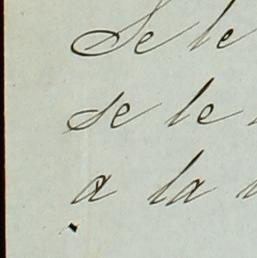 Se le
se le
a la